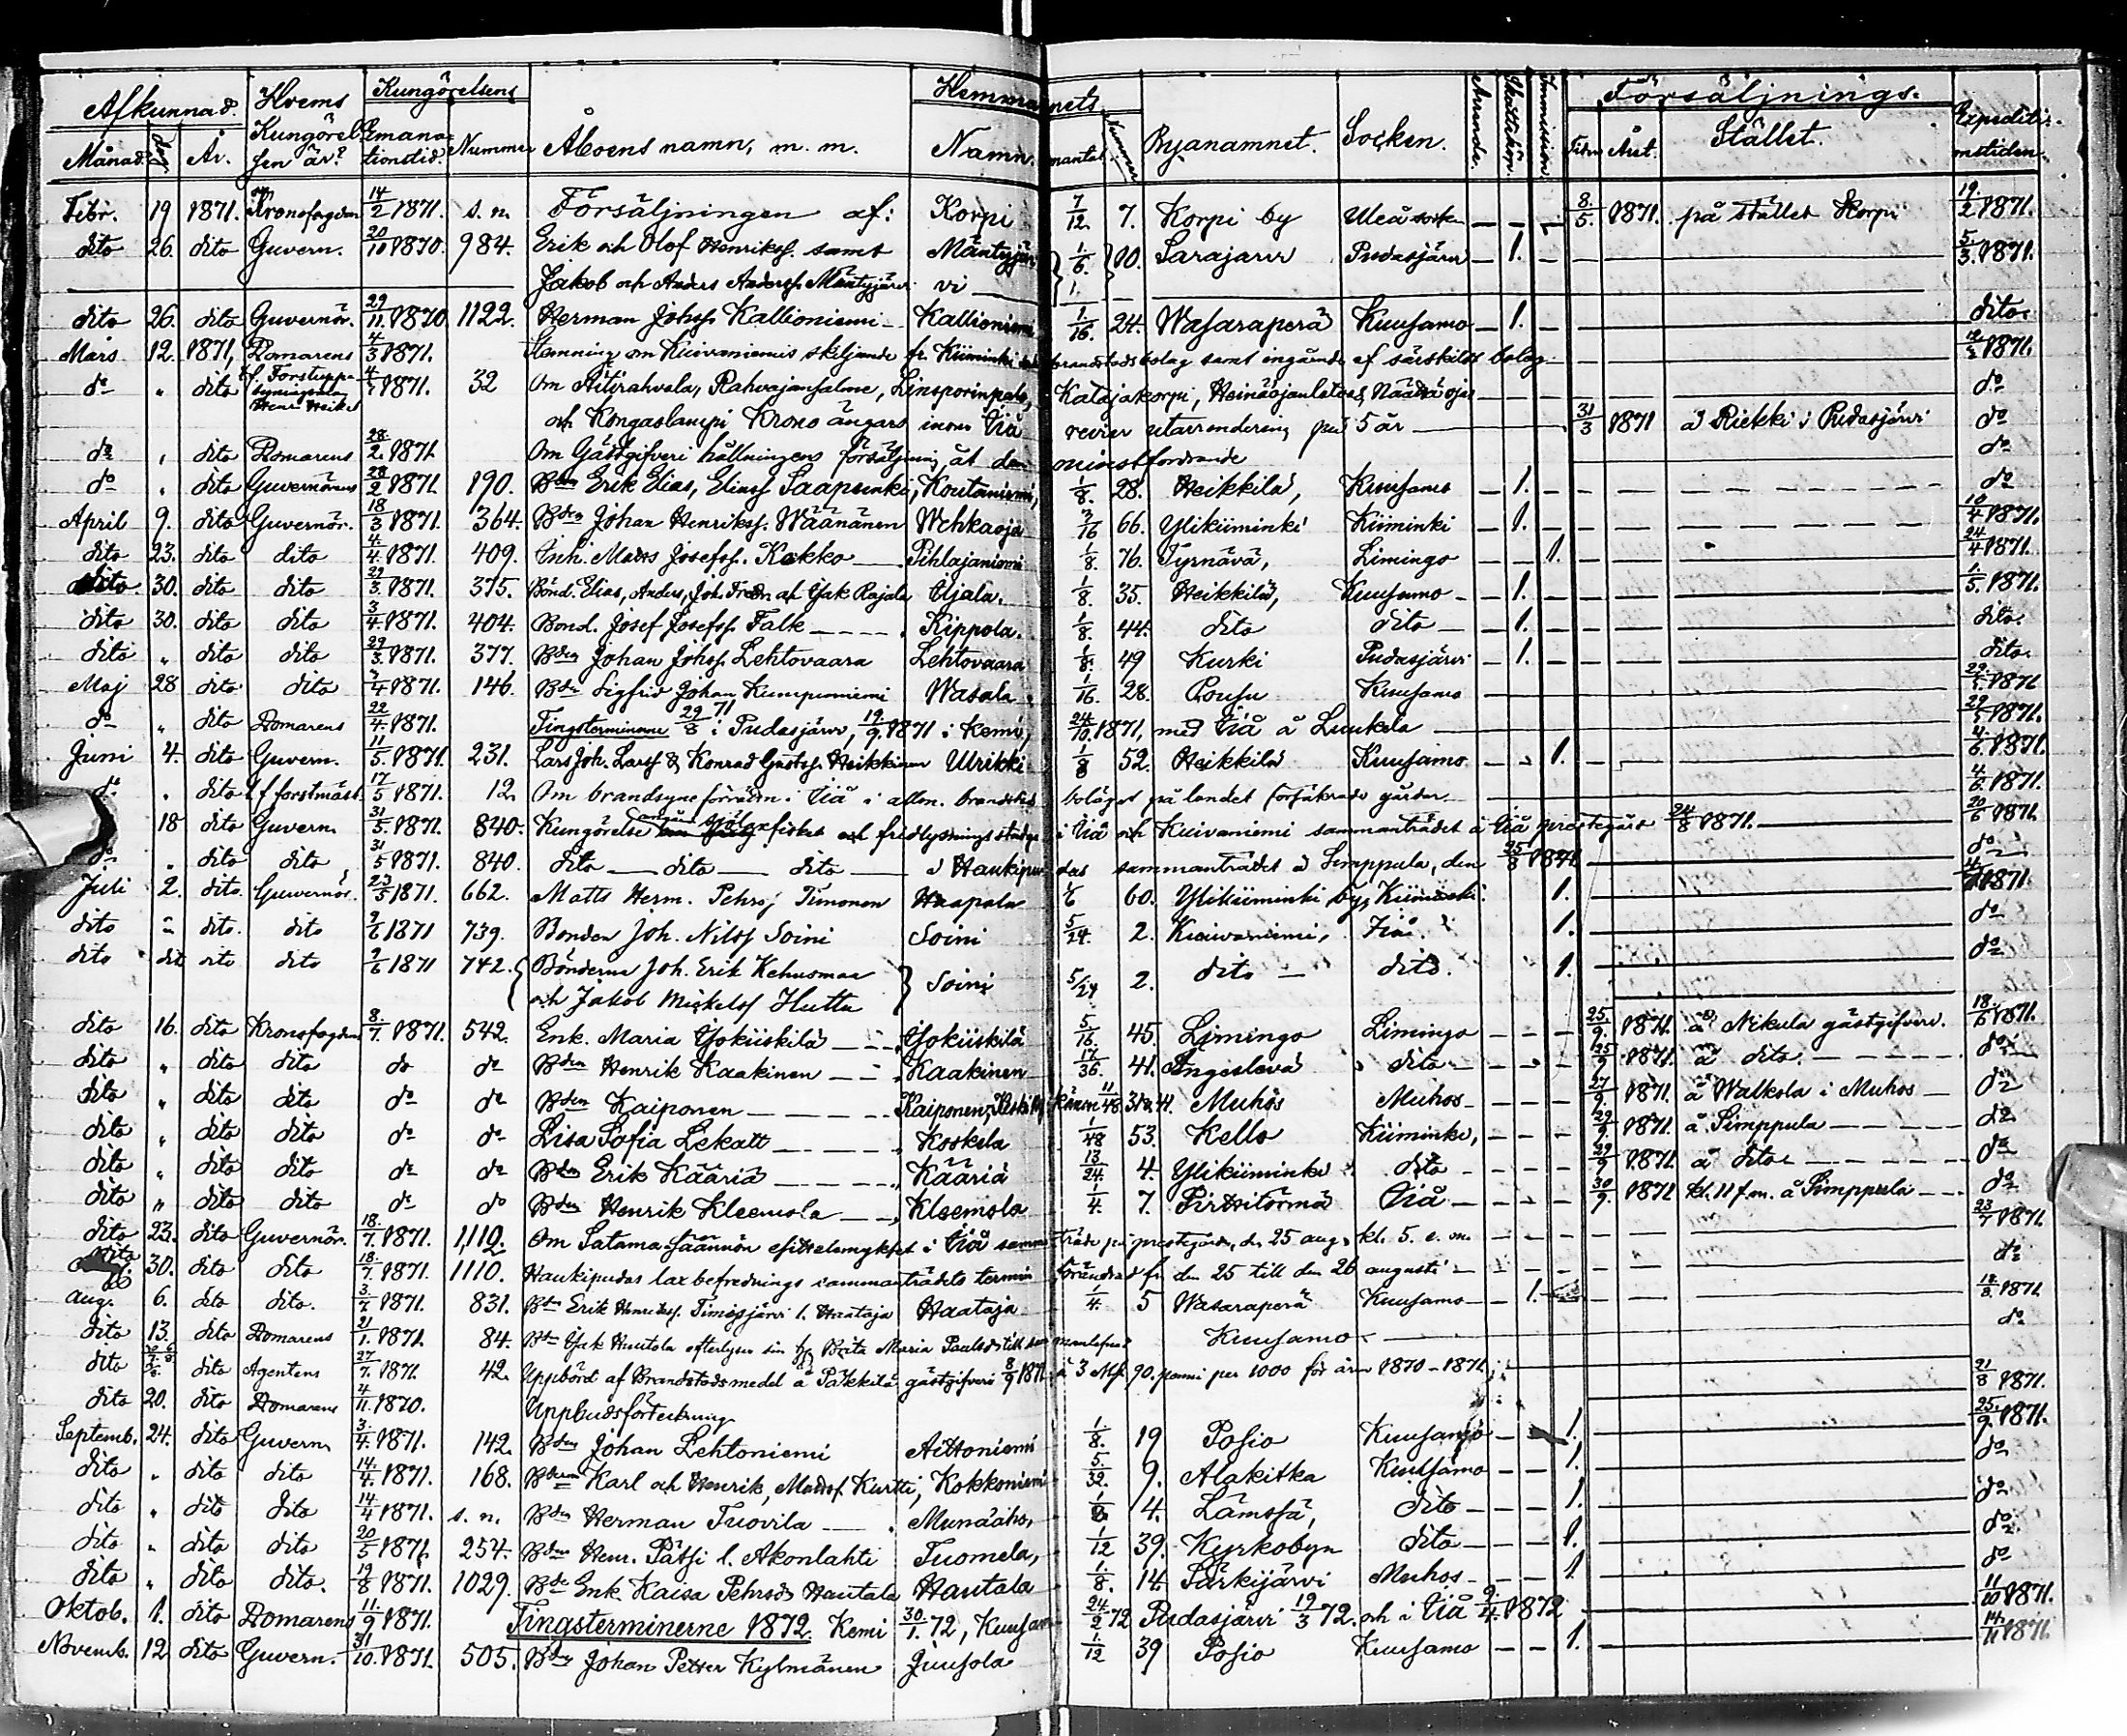 Afkunnad. Hvems Kungörelsens Hemmanets Försäljnings- Expediti-
Månad. dag År. Kungörel- Emana- Nummer Åboens namn, m. m. Namn. mantal. Nummer Byanamnet. Socken. Arrende. Skattköp. Immission. Tiden Året. Stället. onstiden.
sen är? tionstid.
Febr. 19 1871. Kronofogden 14/2 1871. s. n. Försäljningen af: Korpi 7/12. 7. Korpi by Uleå sock. — — — 8/5. 1871. på stället Korpi 19/2 1871.
dito 26. dito Guvern. 20/11 1870. 984. Erik och Olof Henrikss. samt Mäntyjär- 1/6. 10. Sarajärvi Pudasjärvi — 1. — 5/3. 1871.
Jakob och Anders Anderss. Mäntyjärvi vi 1.
dito 26. dito Guvernör. 29/11. 1870. 1122. Herman Johss. Kallioniemi Kallioniemi 1/16. 24. Wasaraperä Kuusamo — 1. — dito
Mars 12. 1871, Domarens 4/3 1871. Stämning om Kuivaniemis skiljande fr. Kiiminki brandstodsbolag samt ingående af särskildt bolag 1871.
do „ dito 1871. 32 Om Äitirahvala, Rahvajansalme, Linsporinpalo, Katajakorpi, Heinäojanlatvas, Näätäojas do
och Kongaslampi Krono ängars inom Iiå revier utarrendering på 5 år 31/3 1871 å Riekki i Pudasjärvi do
do „ dito Domarens 28/2. 1871 Om Gästgifveri hållningens försäljning åt den minstfordrande do
do „ dito Guvernörens 28/2 1871. 190. Bden Erik Elias, Eliass. Saapunki, Koutaniemi, 1/8. 28. Heikkilä, Kuusamo — 1. — do
April 9. dito Guvernör. 18/3 1871. 364. Bden Johan Henrikss. Väänänen Wehkaoja 3/16 66. Ylikiiminki Kiiminki — 1. — 10/4 1871.
dito 23. dito dito 4/4. 1871. 409. Inh. Matts Josefss. Kakko Pihlajaniemi 1/8. 76. Tyrnävä, Limingo — — 1. 24/4 1871.
dito 30. dito dito 29/3. 1871. 375. Bönd. Elias, Anders, Joh. Fredr. af Isak Rajala Ojala. 1/8 35. Heikkilä, Kuusamo — 1. — 1/5. 1871.
dito 30. dito dito 3/4. 1871. 404. Bond. Josef Josefss. Falk Kippola. 1/8. 44. dito dito — 1. — dito.
dito „ dito dito 29/3. 1871. 377. Bden Johan Johss. Lehtovaara Lehtovaara 1/8. 49 Kurki Pudasjärvi — 1. — dito.
Maj 28 dito dito 1871. 146. Bden Sigfrid Johan Kumpuniemi Wasala 1/16. 28. Pousu Kuusamo 29/5. 1871
do „ dito Domarens 22/4. 1871. Tingsterminerne 29/8 71 i Pudasjärvi, 19/9 1871 i Kemi, 24/10. 1871, med Iiå å Luukela 29/5 1871.
Juni 4. dito Guvern. 11/5. 1871. 231. Lars Joh. Larss. & Konrad Gustafs. Heikkinen Ulrikki 1/8 52. Heikkilä Kuusamo — — 1. 4/6. 1871.
do „ dito t f forstmäst. 17/5 1871. 12. Om brandsyneförrättn. i Iiå i allm. brandstods bolaget på landet försäkrade gårdar 4/6. 1871.
18 dito Guvern. 31/5. 1871. 840. Kungörelse angåe själafisket och fridlysnings stadga i Iiå och Kuivaniemi sammanträdet å Iiå prestegård 24/8 1871. 20/6 1871.
do „ dito dito 31/5 1871. 840. dito — dito — dito — å Haukipu- das sammanträdet å Simppula, den 25/8 1871 do
Juli 2. dito. Guvernör. 23/5 1871. 662. Matts Herm. Pehrsj Timonen Haapala 1/6 60. Ylikiiminki by, Kiiminki. 1. 1871
dito „ dito. dito 9/6 1871 739. Bonden Joh. Nilss Soini Soini 5/24. 2. Kuivaniemi, Iiå. 1. do
dito dit dito dito 9/6 1871 742. Bönderne Joh. Erik Kehusmaa Soini 5/24 2. dito — dito. 1. do
och Jakob Mickelss Huttu
dito 16. dito Kronofogden 8./7. 1871. 542. Enk. Maria Isokiiskilä Isokiiskilä 5/16. 45. Limingo Limingo — — — 25/9. 1871. å Nikula gästgifveri. 18/6 1871.
dito „ dito dito do do Bden Henrik Kaakinen Kaakinen 17/36. 41. Ängeslevä dito — — — 25/9 1871. å dito. do
dito „ dito dito do do Bden Kaiponen Kaiponen, 11/48. Muhos Muhos 27/9. 1871. å Walkola i Muhos do
dito „ dito dito do do Lisa Sofia Lekatt Koskela 1/48 53. Kello Kiiminki, — — — 29/9. 1871. å Simppula do
dito „ dito dito do do Bden Erik Kääriä Kääriä 13/24. 4. Ylikiiminki dito — — — 29/9 1871. å dito do
dito „ dito dito do do Bden Henrik Kleemola Kleemola 1/4. 7. Pirttitörmä Iiå — — — 30/9. 1871 kl. 11 f.m. å Simppula do
dito 23. dito Guvernör. 18./7. 1871. 1,110. Om Satama Säännön esittelemykset i Iiå samman- träde på prestegården, d. 25 aug. kl. 5. e. m. 23/7 1871
dito 30. dito dito 18./7. 1871. 1110. Haukipudas laxbefrednings sammanträdets termin förändrad fr. den 25 till den 26 augusti do
Aug. 6. dito dito. 3./7 1871. 831. Bden Erik Henrikss. Timisjärvi l. Haataja Haataja 1/4. 5 Wasaraperä Kuusamo — 1. 14/8 1871
dito 13. dito Domarens 21/1. 1871. 84. Bden Isak Huutola efterlyser sin Brita Maria Paulsdr till Kuusamo do
dito dito Agentens 27/7. 1871. 42. Uppbörd af Brandstodsmedel å Päkkilä gästgifveri 8/9 1871. à 3 Mk 90. penni per 1000 för åren 1870-1871 21/8 1871.
dito 20. dito Domarens 4/11. 1870. Uppbudsförteckning
Septemb. 24. dito Guvern. 3./4. 1871. 142. Bden Johan Lehtoniemi Aittoniemi 1/8. 19 Posio Kuusamo — — 1. 25./9 1871.
dito „ dito dito 14./4. 1871. 168. Bderne Karl och Henrik, Mattss. Kurtti, Kokkoniemi 5/32. 9. Alakitka Kuusamo — — 1. do
dito „ dito dito 14/4 1871. s. n. Bden Herman Tuovila Munäaho, 1/8. 4. Lämssä, dito — — 1. do
dito „ dito dito 20/5 1871. 254. Bden Henr. Pätsi l. Akonlahti Tuomela, 1/12 39. Kyrkobyn dito — — 1. do
dito „ dito dito. 19/8 1871. 1029. Bde Enk. Kaisa Pehrsdr Hautala Hautala 1/8. 14 Särkijärvi Muhos — — 1. do
Oktob. 1. dito Domarens 11./9 1871. Tingsterminerne 1872. Kemi 30/1. 72, Kuusamo 24/2 72 Pudasjärvi 19/3 72. och i Iiå 9/4. 1872 11/10 1871.
Novemb. 12 dito Guvern. 31/10. 1871. 505. Bden Johan Petter Kylmänen Juusola 1/12 39 Posio Kuusamo — — 1. 14/11 1871.